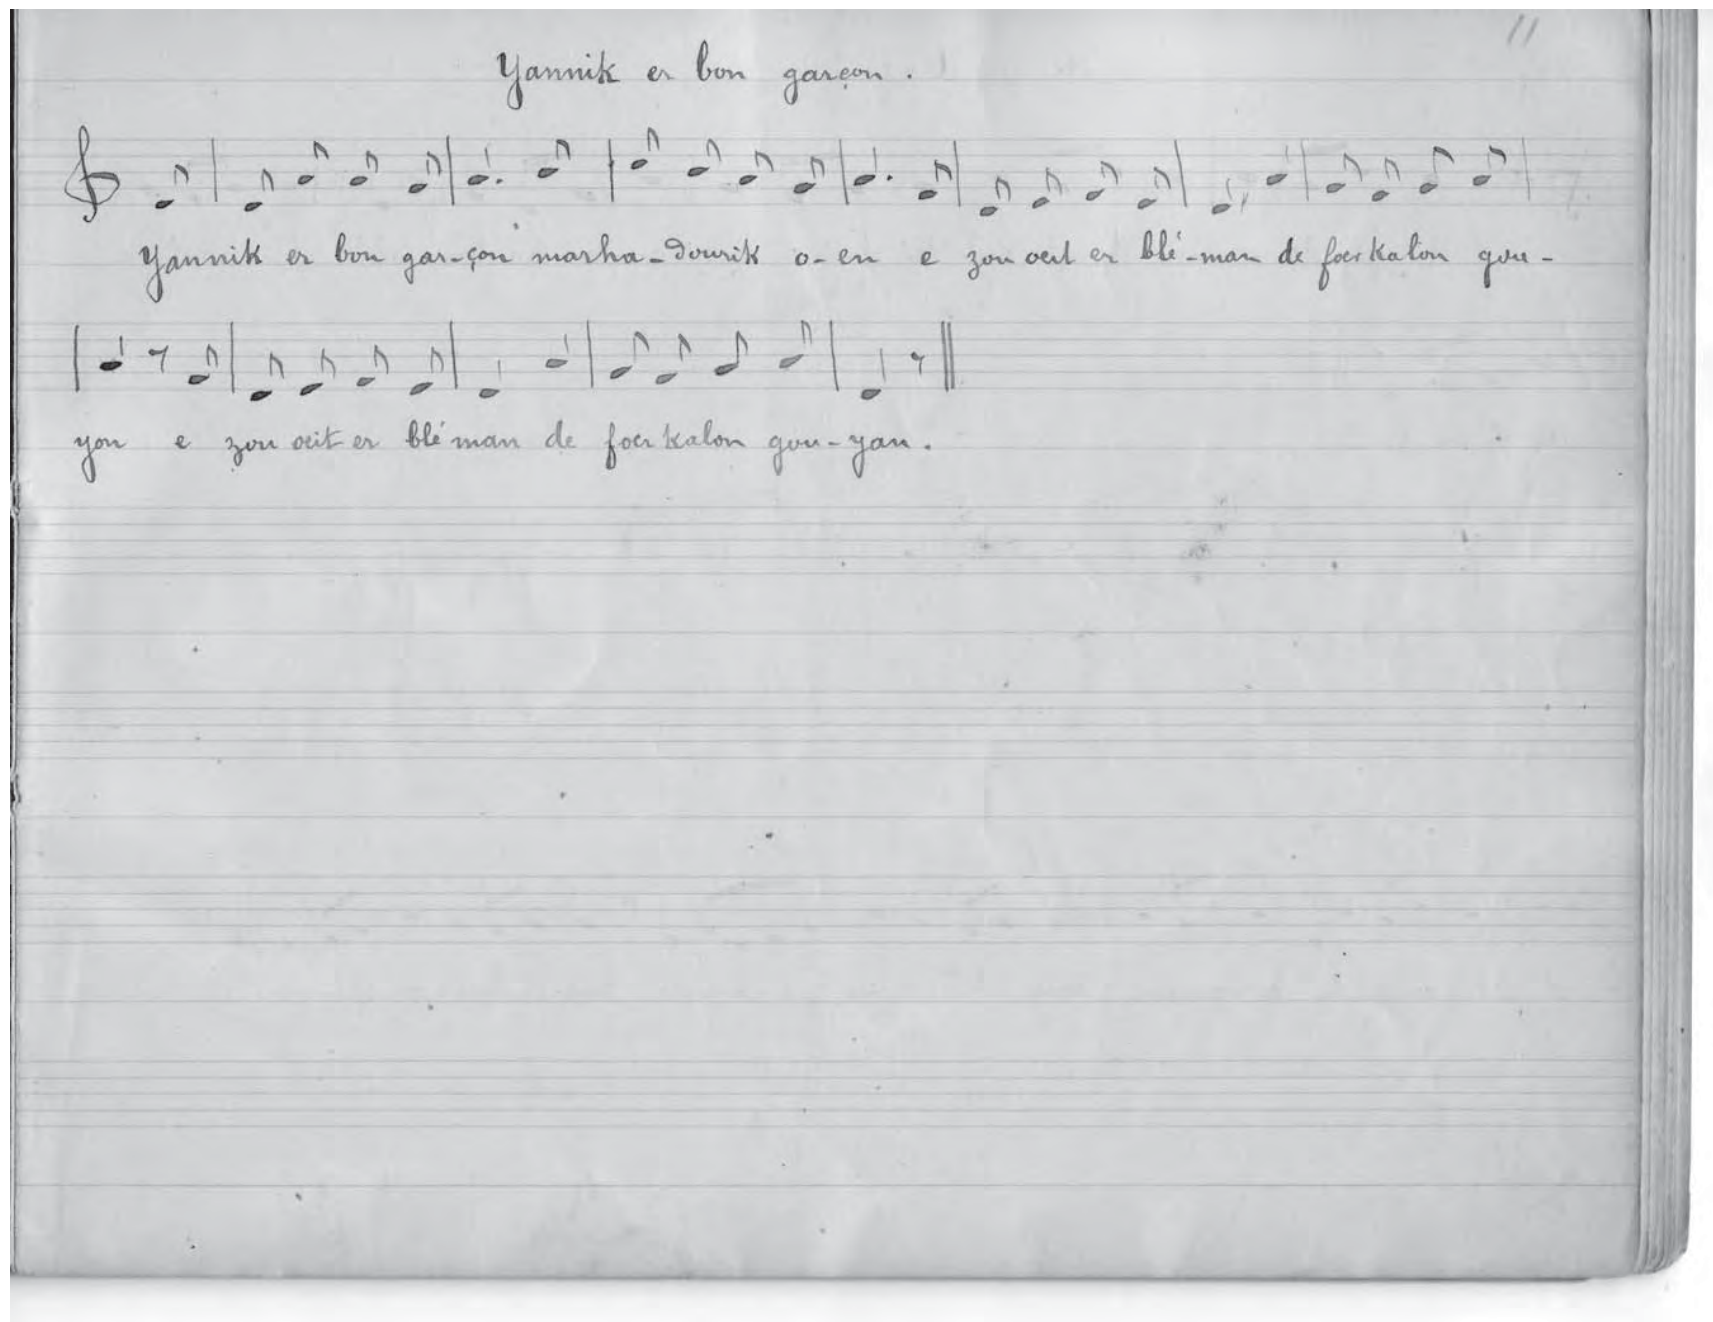 11
Yannik er bon garçon.
Yannik er bon gar-çon marha-dourik o-en e zou oeit er blé-man de foer kalon gou-
yon e zou oeit er blé man de foer kalon gou-yan.